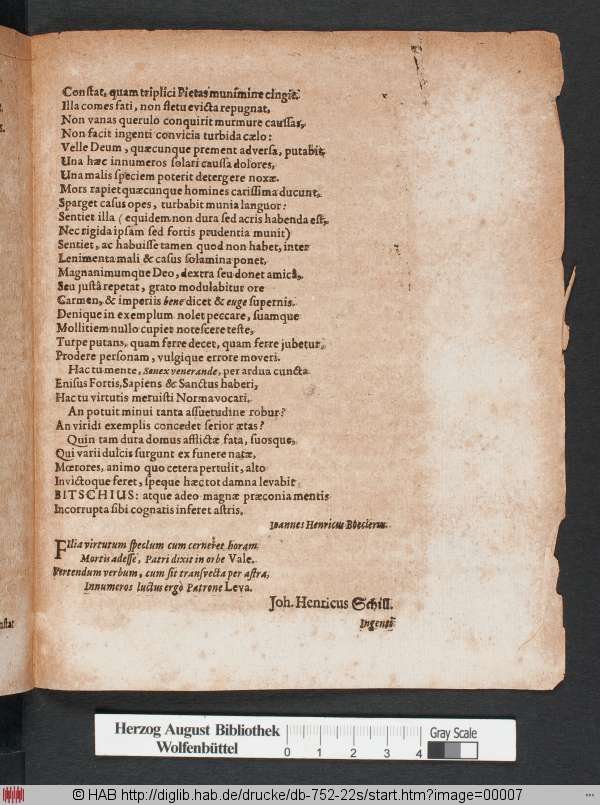 Conſtat, quam triplici Pietas munimine cingit.
Illa comes fati, non fletu evicta repugnat,
Non vanas querulo conquirit murmure cauſſas,
Non facit ingenti convicia turbida cælo:
Velle Deum, quæcunque prement adverſa, putabit,
Una hæc innumeros ſolari cauſſa dolores,
Una malis ſpeciem poterit detergere noxæ.
Mors rapiet quæcunque homines cariſſima ducunt,
Sparget caſus opes, turbabit munia languor:
Sentiet illa (equidem non dura ſed acris habenda eſt,
Nec rigida ipſam ſed fortis prudentia munit)
Sentiet, ac habuiſſe tamen quod non habet, inter
Lenimenta mali & caſus ſolamina ponet,
Magnanimumque Deo, dextra ſeu donet amicâ,
Seu juſtâ repetat, grato modulabitur ore
Carmen, & imperiis bene dicet & euge ſupernis.
Denique in exemplum nolet peccare, ſuamque
Mollitiem nullo cupiet noteſcere teſte,
Turpe putans, quam ferre decet, quam ferre jubetur,
Prodere perſonam, vulgique errore moveri.
Hac tu mente, Senex venerande, per ardua cuncta
Eniſus Fortis, Sapiens & Sanctus haberi,
Hac tu virtutis meruiſti Norma vocari.
An potuit minui tanta aſſuetudine robur?
An viridi exemplis concedet ſerior ætas?
Quin tam dura domus afflictæ fata, ſuosque,
Qui varii dulcis ſurgunt ex funere natæ,
Mœrores, animo quo cetera pertulit, alto
Invictoque feret, ſpeque hæc tot damna levabit
BITSCHIUS: atque adeo magnæ præconia mentis
Incorrupta ſibi cognatis inferet aſtris.
Ioannes Henricus Bœclerus.
Filia virtutum ſpeclum cum cerneret horam
Mortis adeſſe, Patri dixit in orbe Vale.
Vertendum verbum, cum ſit transvecta per aſtra,
Innumeros luctus ergò Patrone Leva.
Joh. Henricus Schill.
Ingenti
nſtat
Herzog August Bibliothek
Wolfenbüttel
0 1 2 3 4
Gray Scale
© HAB http://diglib.hab.de/drucke/db-752-22s/start.htm?image=00007